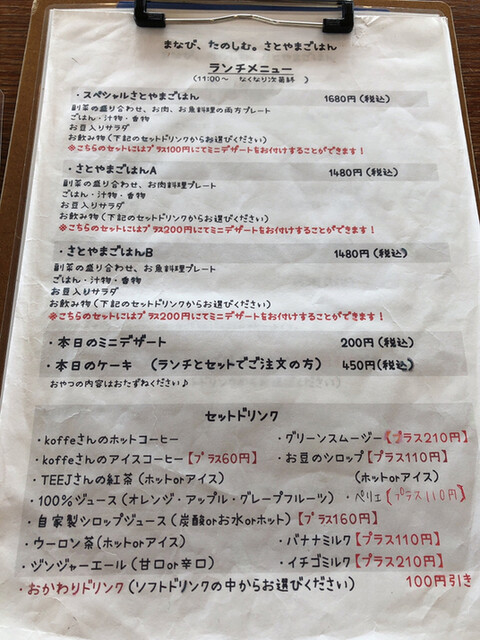 まなび、たのしむ。さとやまごはん
ランチメニュー
(11:00～ なくなり次第終了)
・スペシャルさとやまごはん 1680円(税込)
副菜の盛り合わせ、お肉、お魚料理の両方プレート
ごはん・汁物・香物
お豆入りサラダ
お飲み物(下記のセットドリンクからお選びください)
※こちらのセットにはプラス100円にてミニデザートをお付けすることができます!
・さとやまごはんA 1480円(税込)
副菜の盛り合わせ、お肉料理プレート
ごはん・汁物・香物
お豆入りサラダ
お飲み物(下記のセットドリンクからお選びください)
※こちらのセットにはプラス200円にてミニデザートをお付けすることができます!
・さとやまごはんB 1480円(税込)
副菜の盛り合わせ、お魚料理プレート
ごはん・汁物・香物
お豆入りサラダ
お飲み物(下記のセットドリンクからお選びください)
※こちらのセットにはプラス200円にてミニデザートをお付けすることができます!
・本日のミニデザート 200円(税込)
・本日のケーキ (ランチとセットでご注文の方) 450円(税込)
おやつの内容はおたずねください♪
セットドリンク
・koffeさんのホットコーヒー ・グリーンスムージー【プラス210円】
・koffeさんのアイスコーヒー【プラス60円】 ・お豆のシロップ【プラス110円】
・TEEJさんの紅茶(ホットorアイス) (ホットorアイス)
・100%ジュース(オレンジ・アップル・グレープフルーツ) ・ペリエ【プラス110円】
・自家製シロップジュース(炭酸orお水orホット)【プラス160円】
・ウーロン茶(ホットorアイス) ・バナナミルク【プラス110円】
・ジンジャーエール(甘口or辛口) ・イチゴミルク【プラス210円】
・おかわりドリンク(ソフトドリンクの中からお選びください) 100円引き